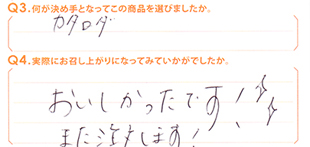 Q3.何が決め手となってこの商品を選びましたか。
カタログ
Q4.実際にお召し上がりになってみていかがでしたか。
おいしかったです!
また注文します!